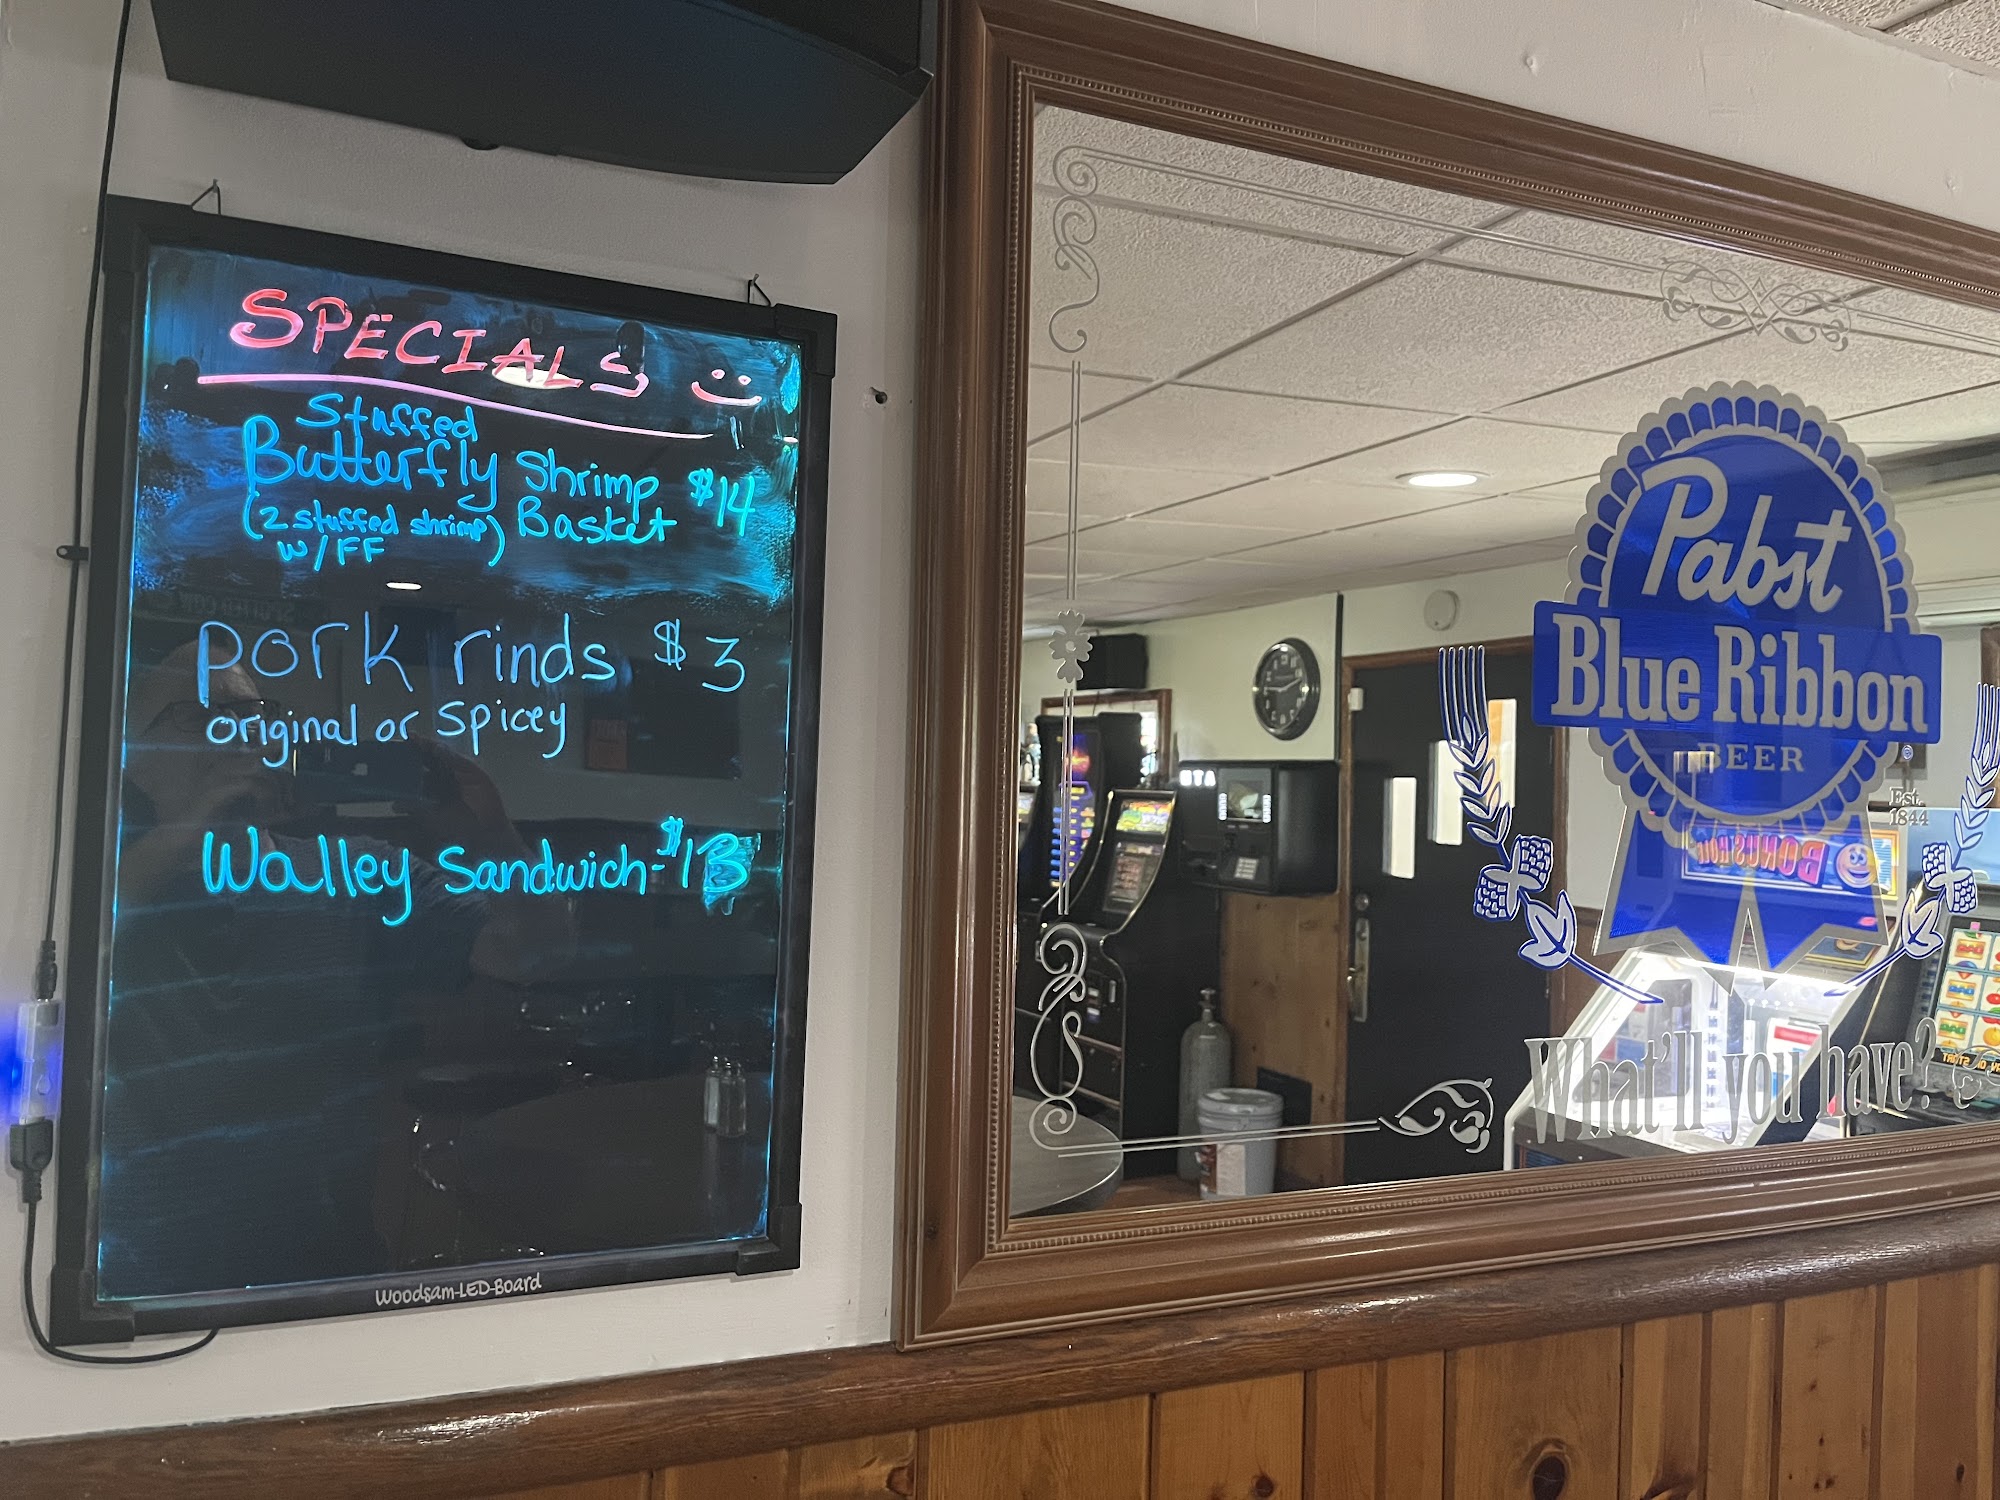 SPECIALS
Stuffed
Butterfly Shrimp $14
(2 stuffed shrimp) Basket
w/FF
pork rinds $3
original or Spicey
Walley Sandwich-$13
Woodsam-LED-Board
Pabst
Blue Ribbon
BEER
Est.
1844
What'll you have?
BONUS